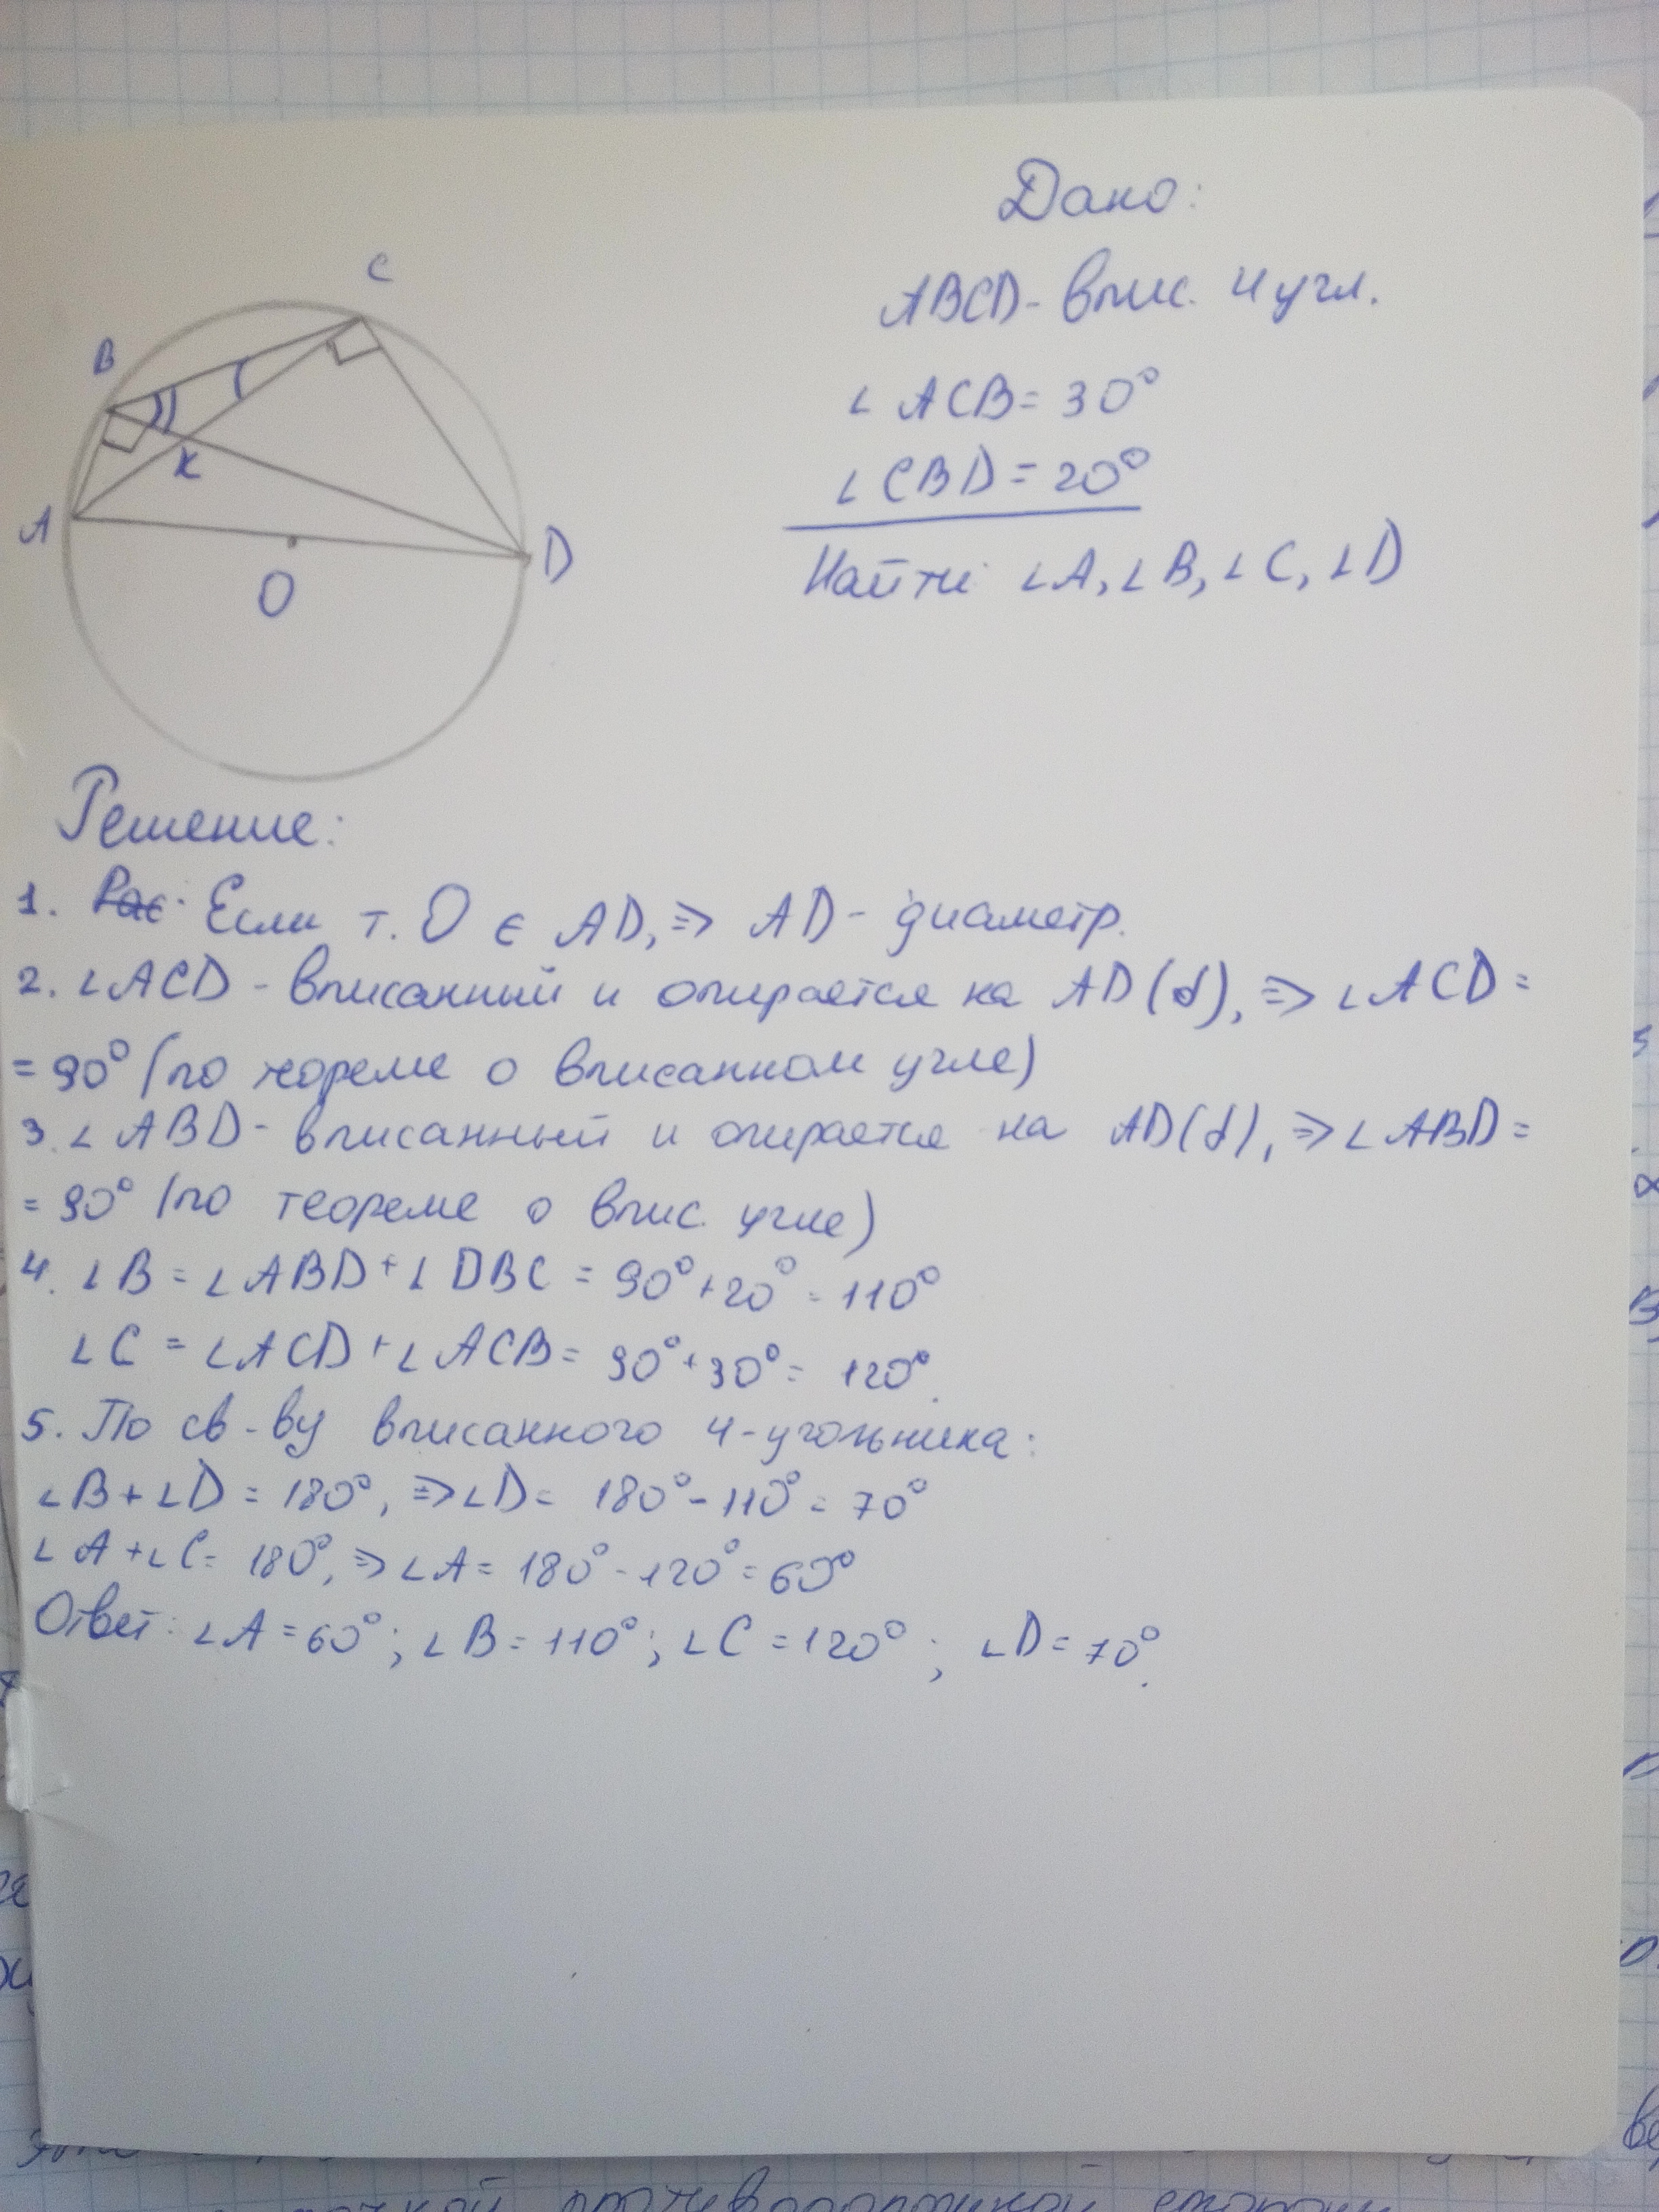 Дано:
ABCD - впис. 4 угл.
∠ ACB = 30°
∠ CBD = 20°
Найти: ∠A, ∠B, ∠C, ∠D
C
B
K
A
D
O
Решение:
1. Рас. Если т. O ∈ AD, ⇒ AD - диаметр.
2. ∠ACD - вписанный и опирается на AD(d), ⇒ ∠ACD =
= 90° (по теореме о вписанном угле)
3. ∠ABD - вписанный и опирается на AD(d), ⇒ ∠ABD =
= 90° (по теореме о впис. угле)
4. ∠B = ∠ABD + ∠DBC = 90° + 20° = 110°
∠C = ∠ACD + ∠ACB = 90° + 30° = 120°.
5. По св-ву вписанного 4-угольника:
∠B + ∠D = 180°, ⇒ ∠D = 180° - 110° = 70°
∠A + ∠C = 180°, ⇒ ∠A = 180° - 120° = 60°
Ответ: ∠A = 60°; ∠B = 110°; ∠C = 120°; ∠D = 70°.